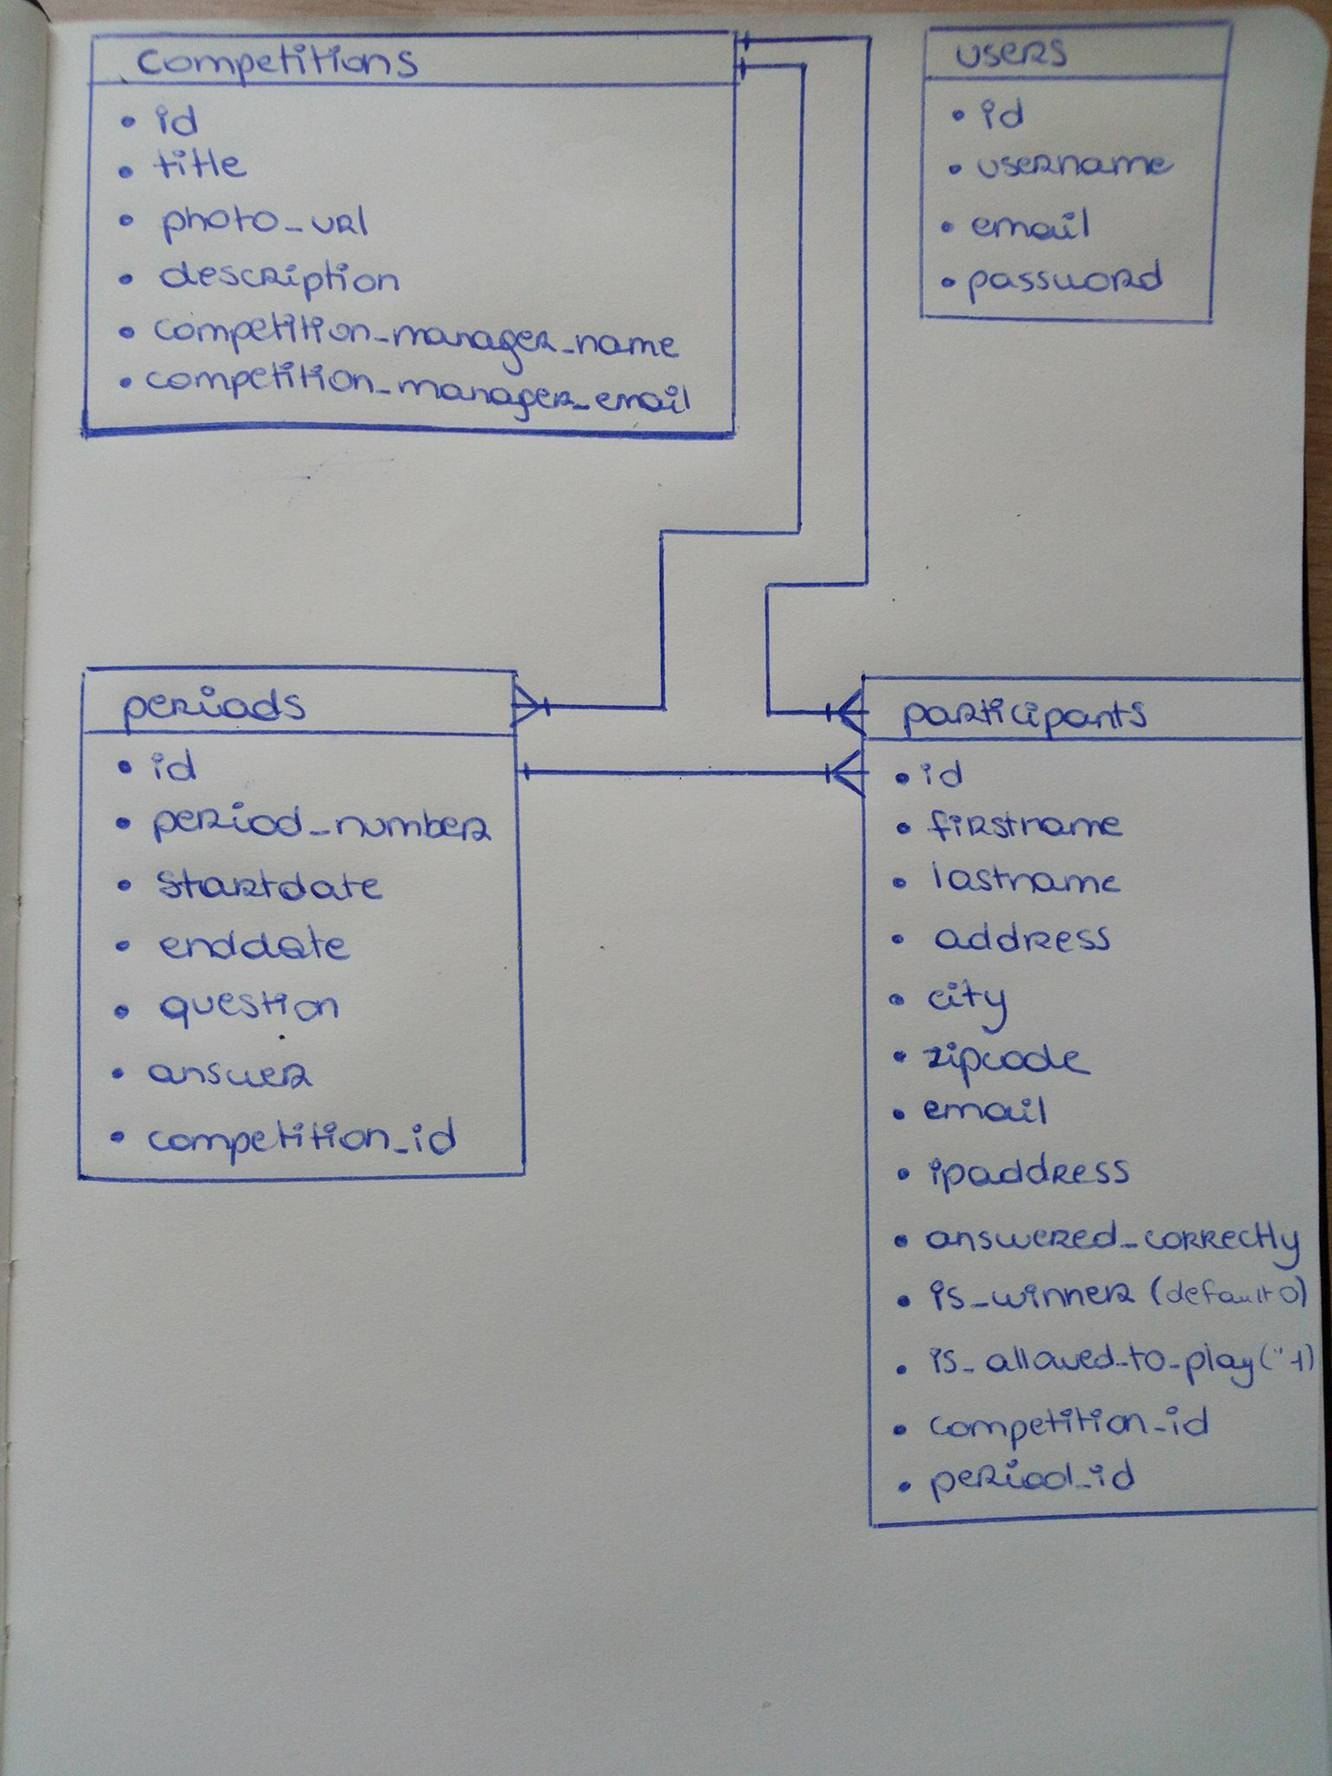 competitions
• id
• title
• photo_url
• description
• competition_manager_name
• competition_manager_email
users
• id
• username
• email
• password
periods
• id
• period_number
• startdate
• enddate
• question
• answer
• competition_id
participants
• id
• firstname
• lastname
• address
• city
• zipcode
• email
• ipaddress
• answered_correctly
• is_winner (default 0)
• is_allowed_to_play (" 1)
• competition_id
• period_id